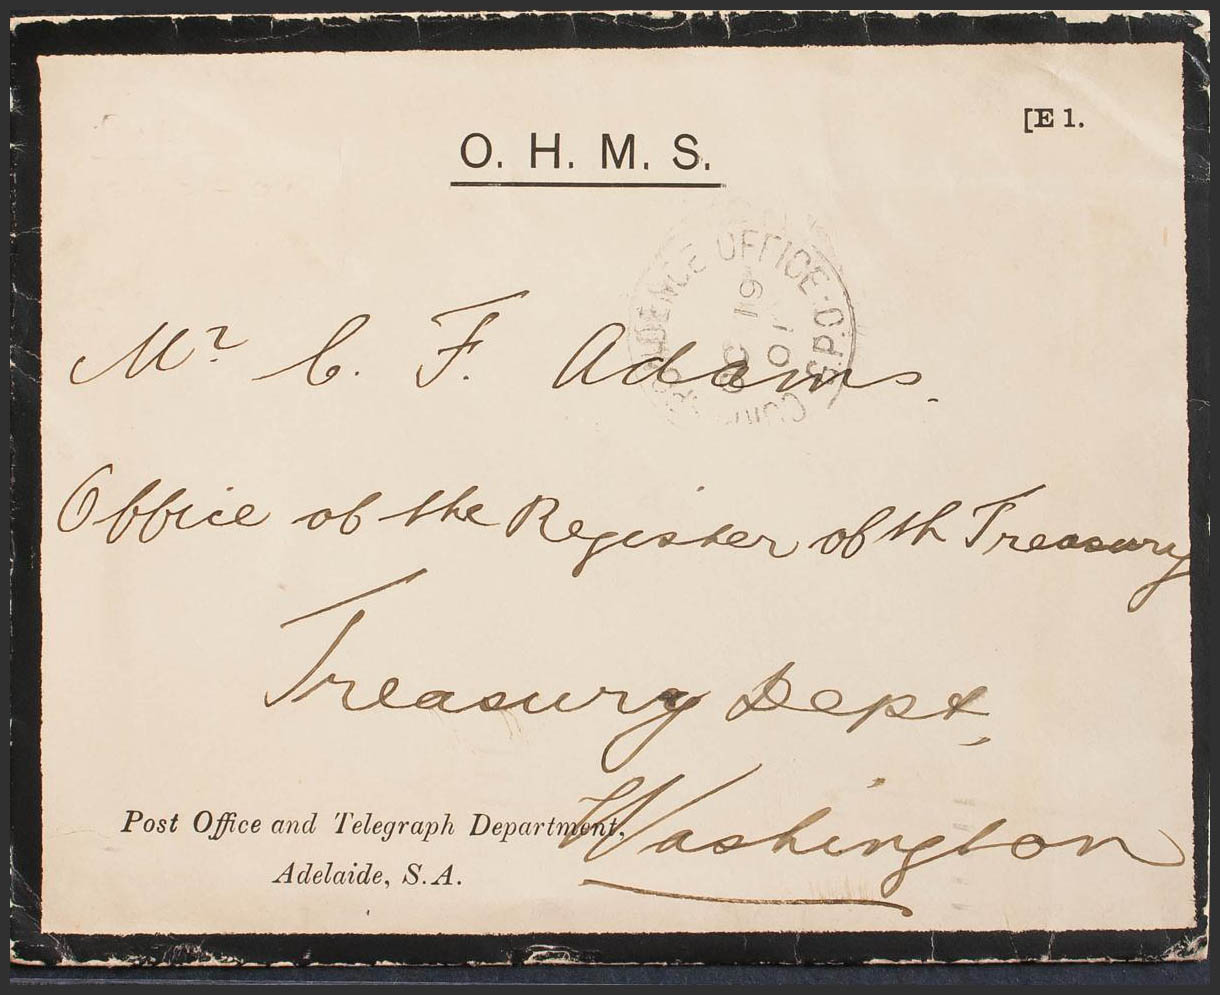 [E 1.
O. H. M. S.
CORRESPONDENCE OFFICE · G.P.O
Mr C. F. Adams.
Office of the Register of th Treasury
Treasury Dept,
Washington
Post Office and Telegraph Department,
Adelaide, S.A.